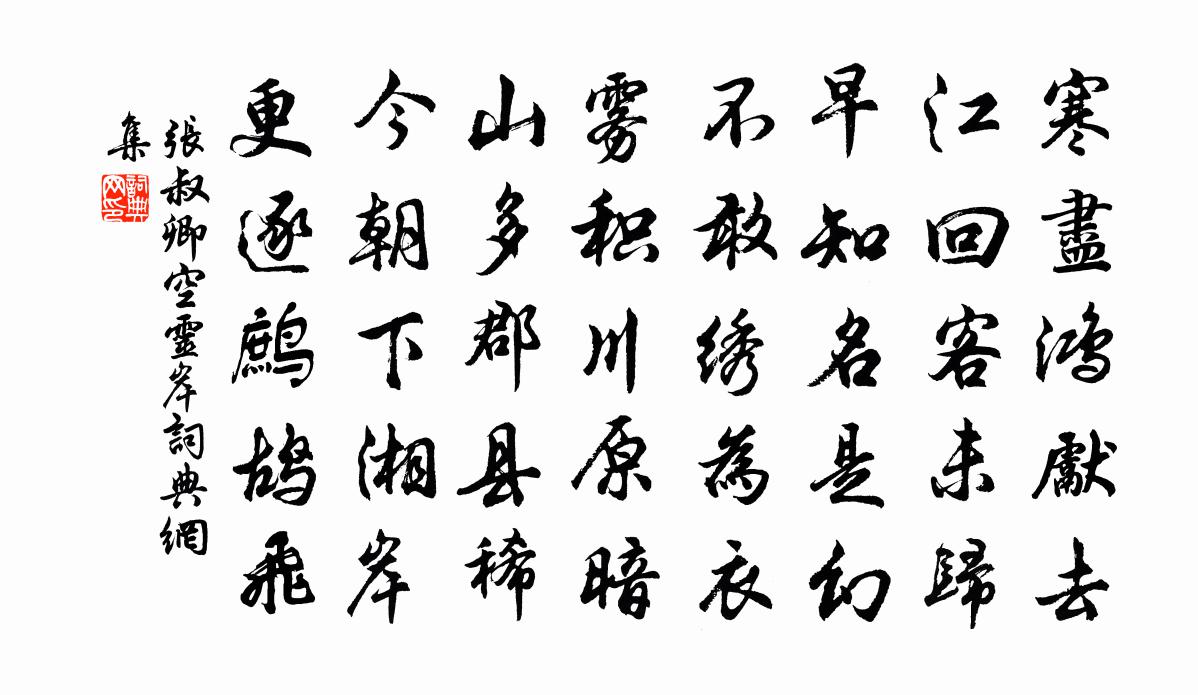 寒盡鴻獻去
江回客未歸
早知名是幻
不敢绣為衣
雾积川原暗
山多郡县稀
今朝下湘岸
更逐鹧鸪飛
張叔卿空靈岸詞典網
集
詞典
网印